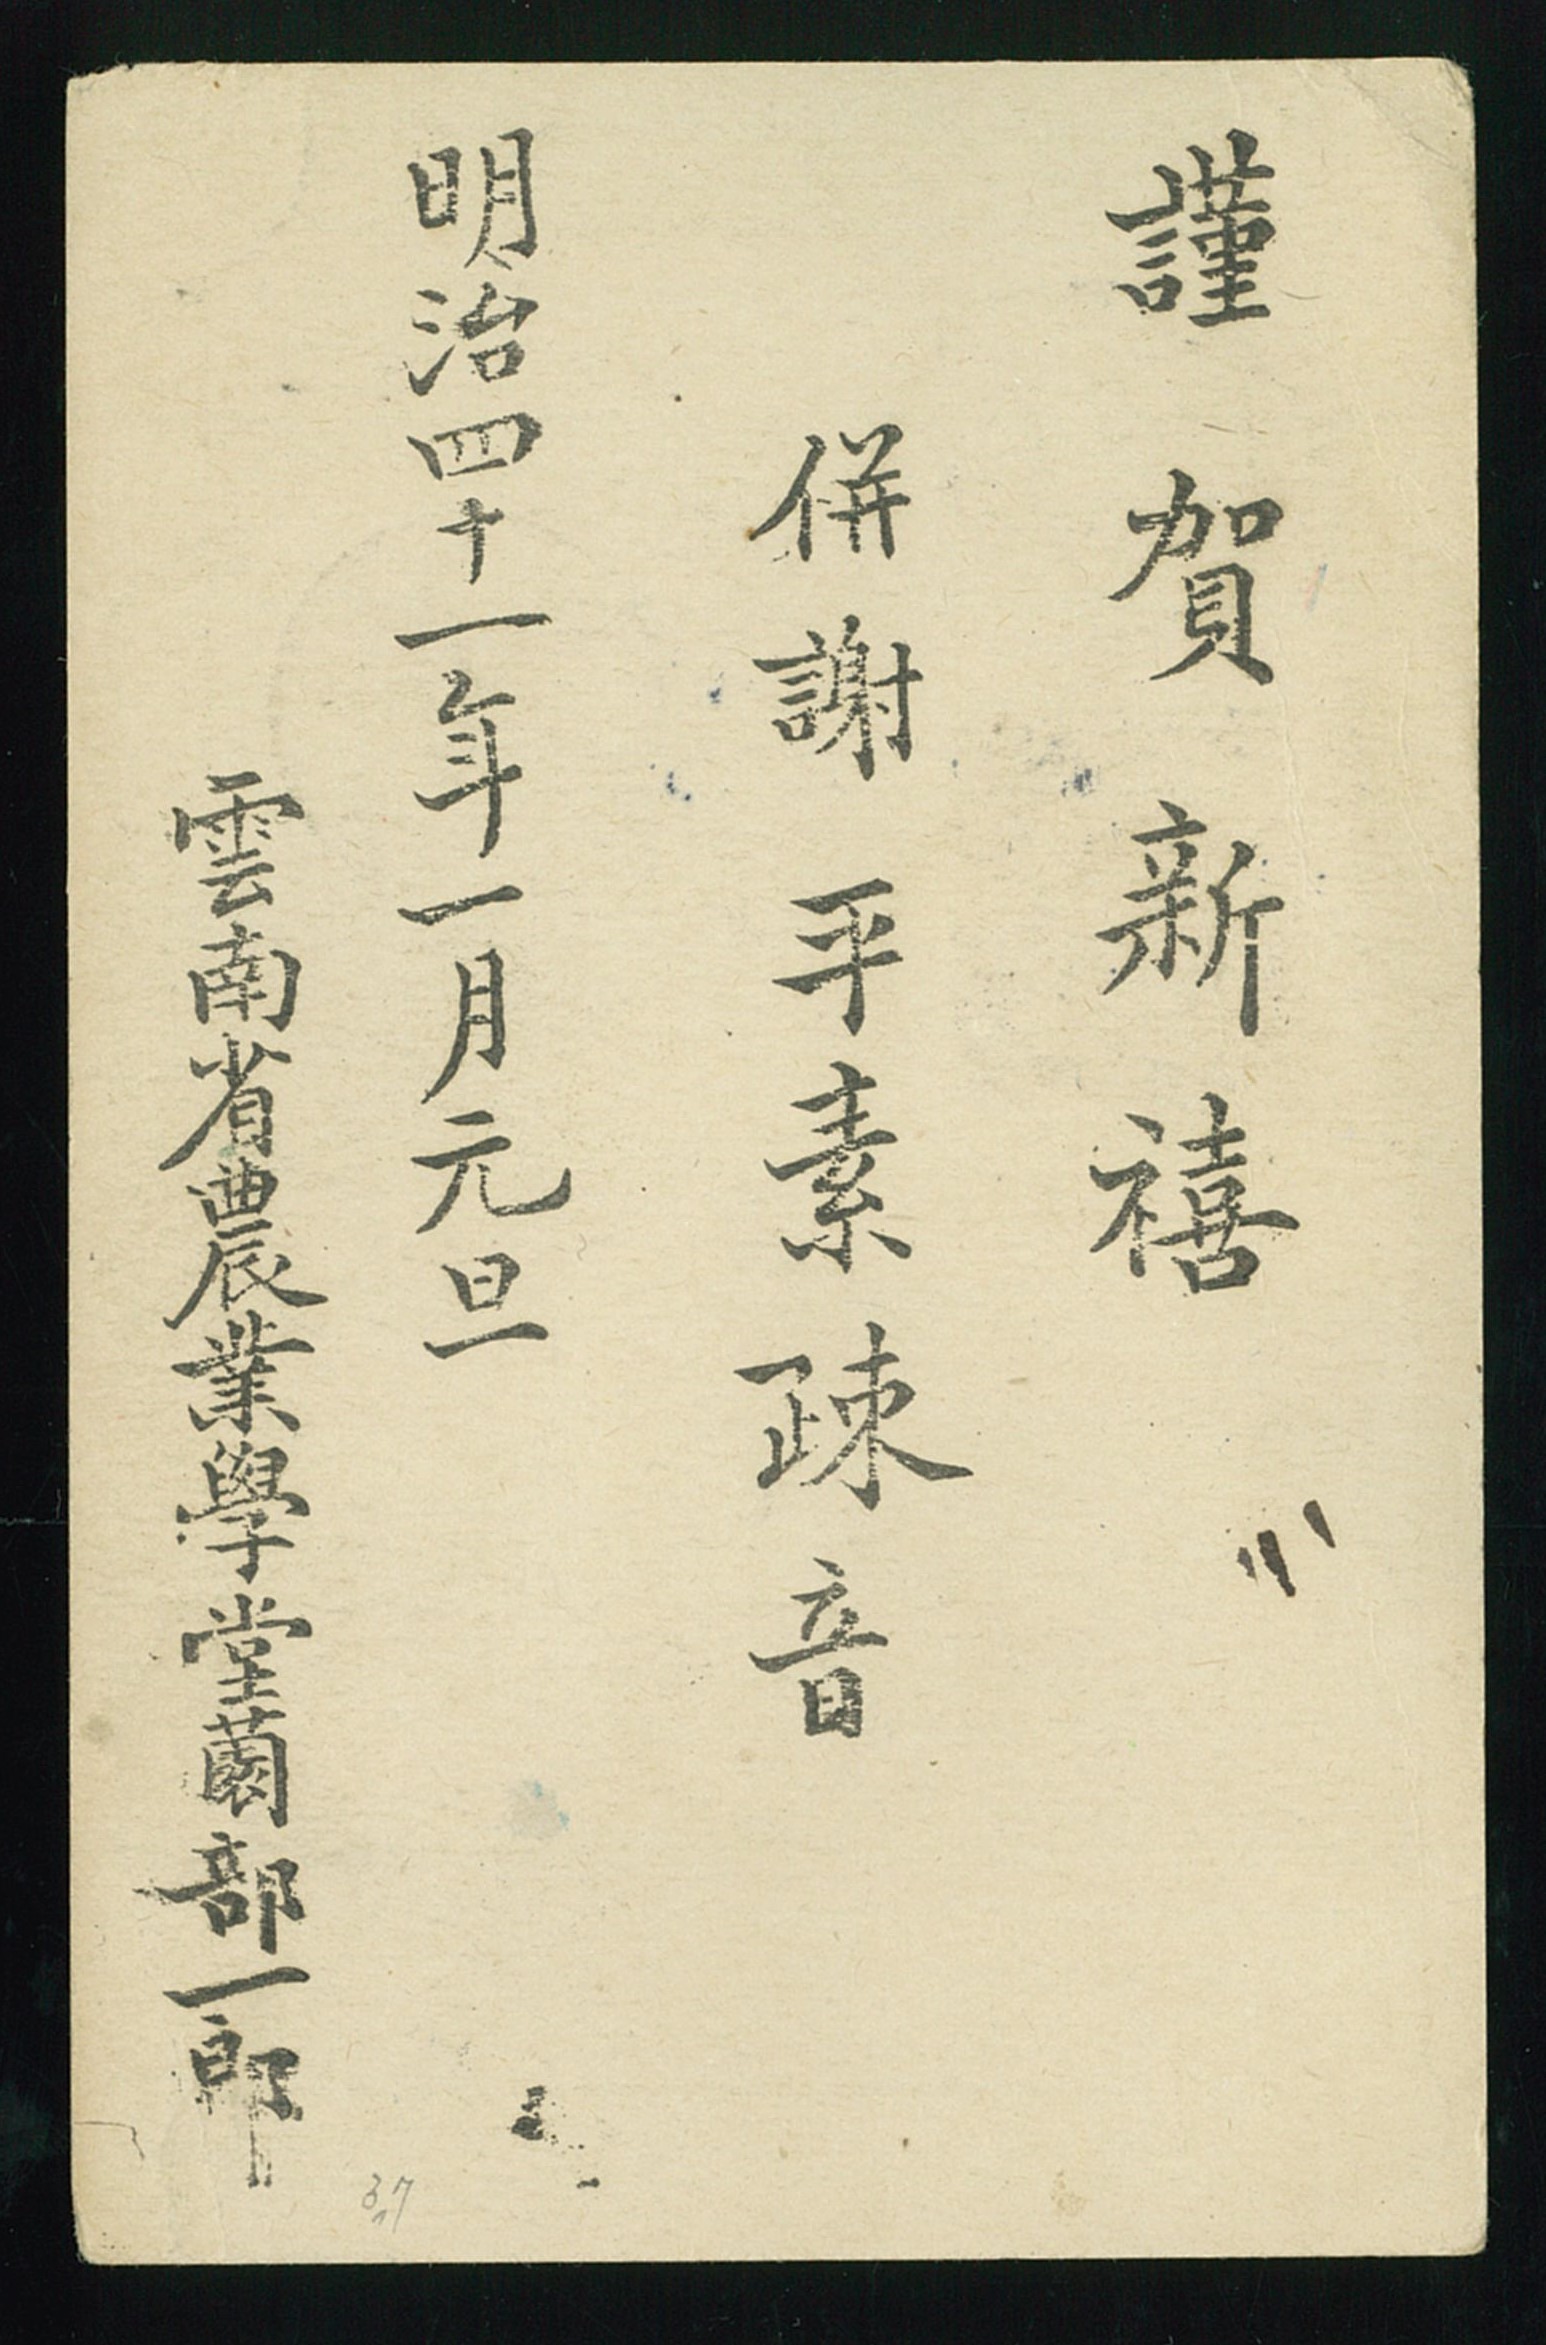 謹賀新禧
併謝平素疎音
明治四十一年一月元旦
雲南省農業學堂薗部一郎
37